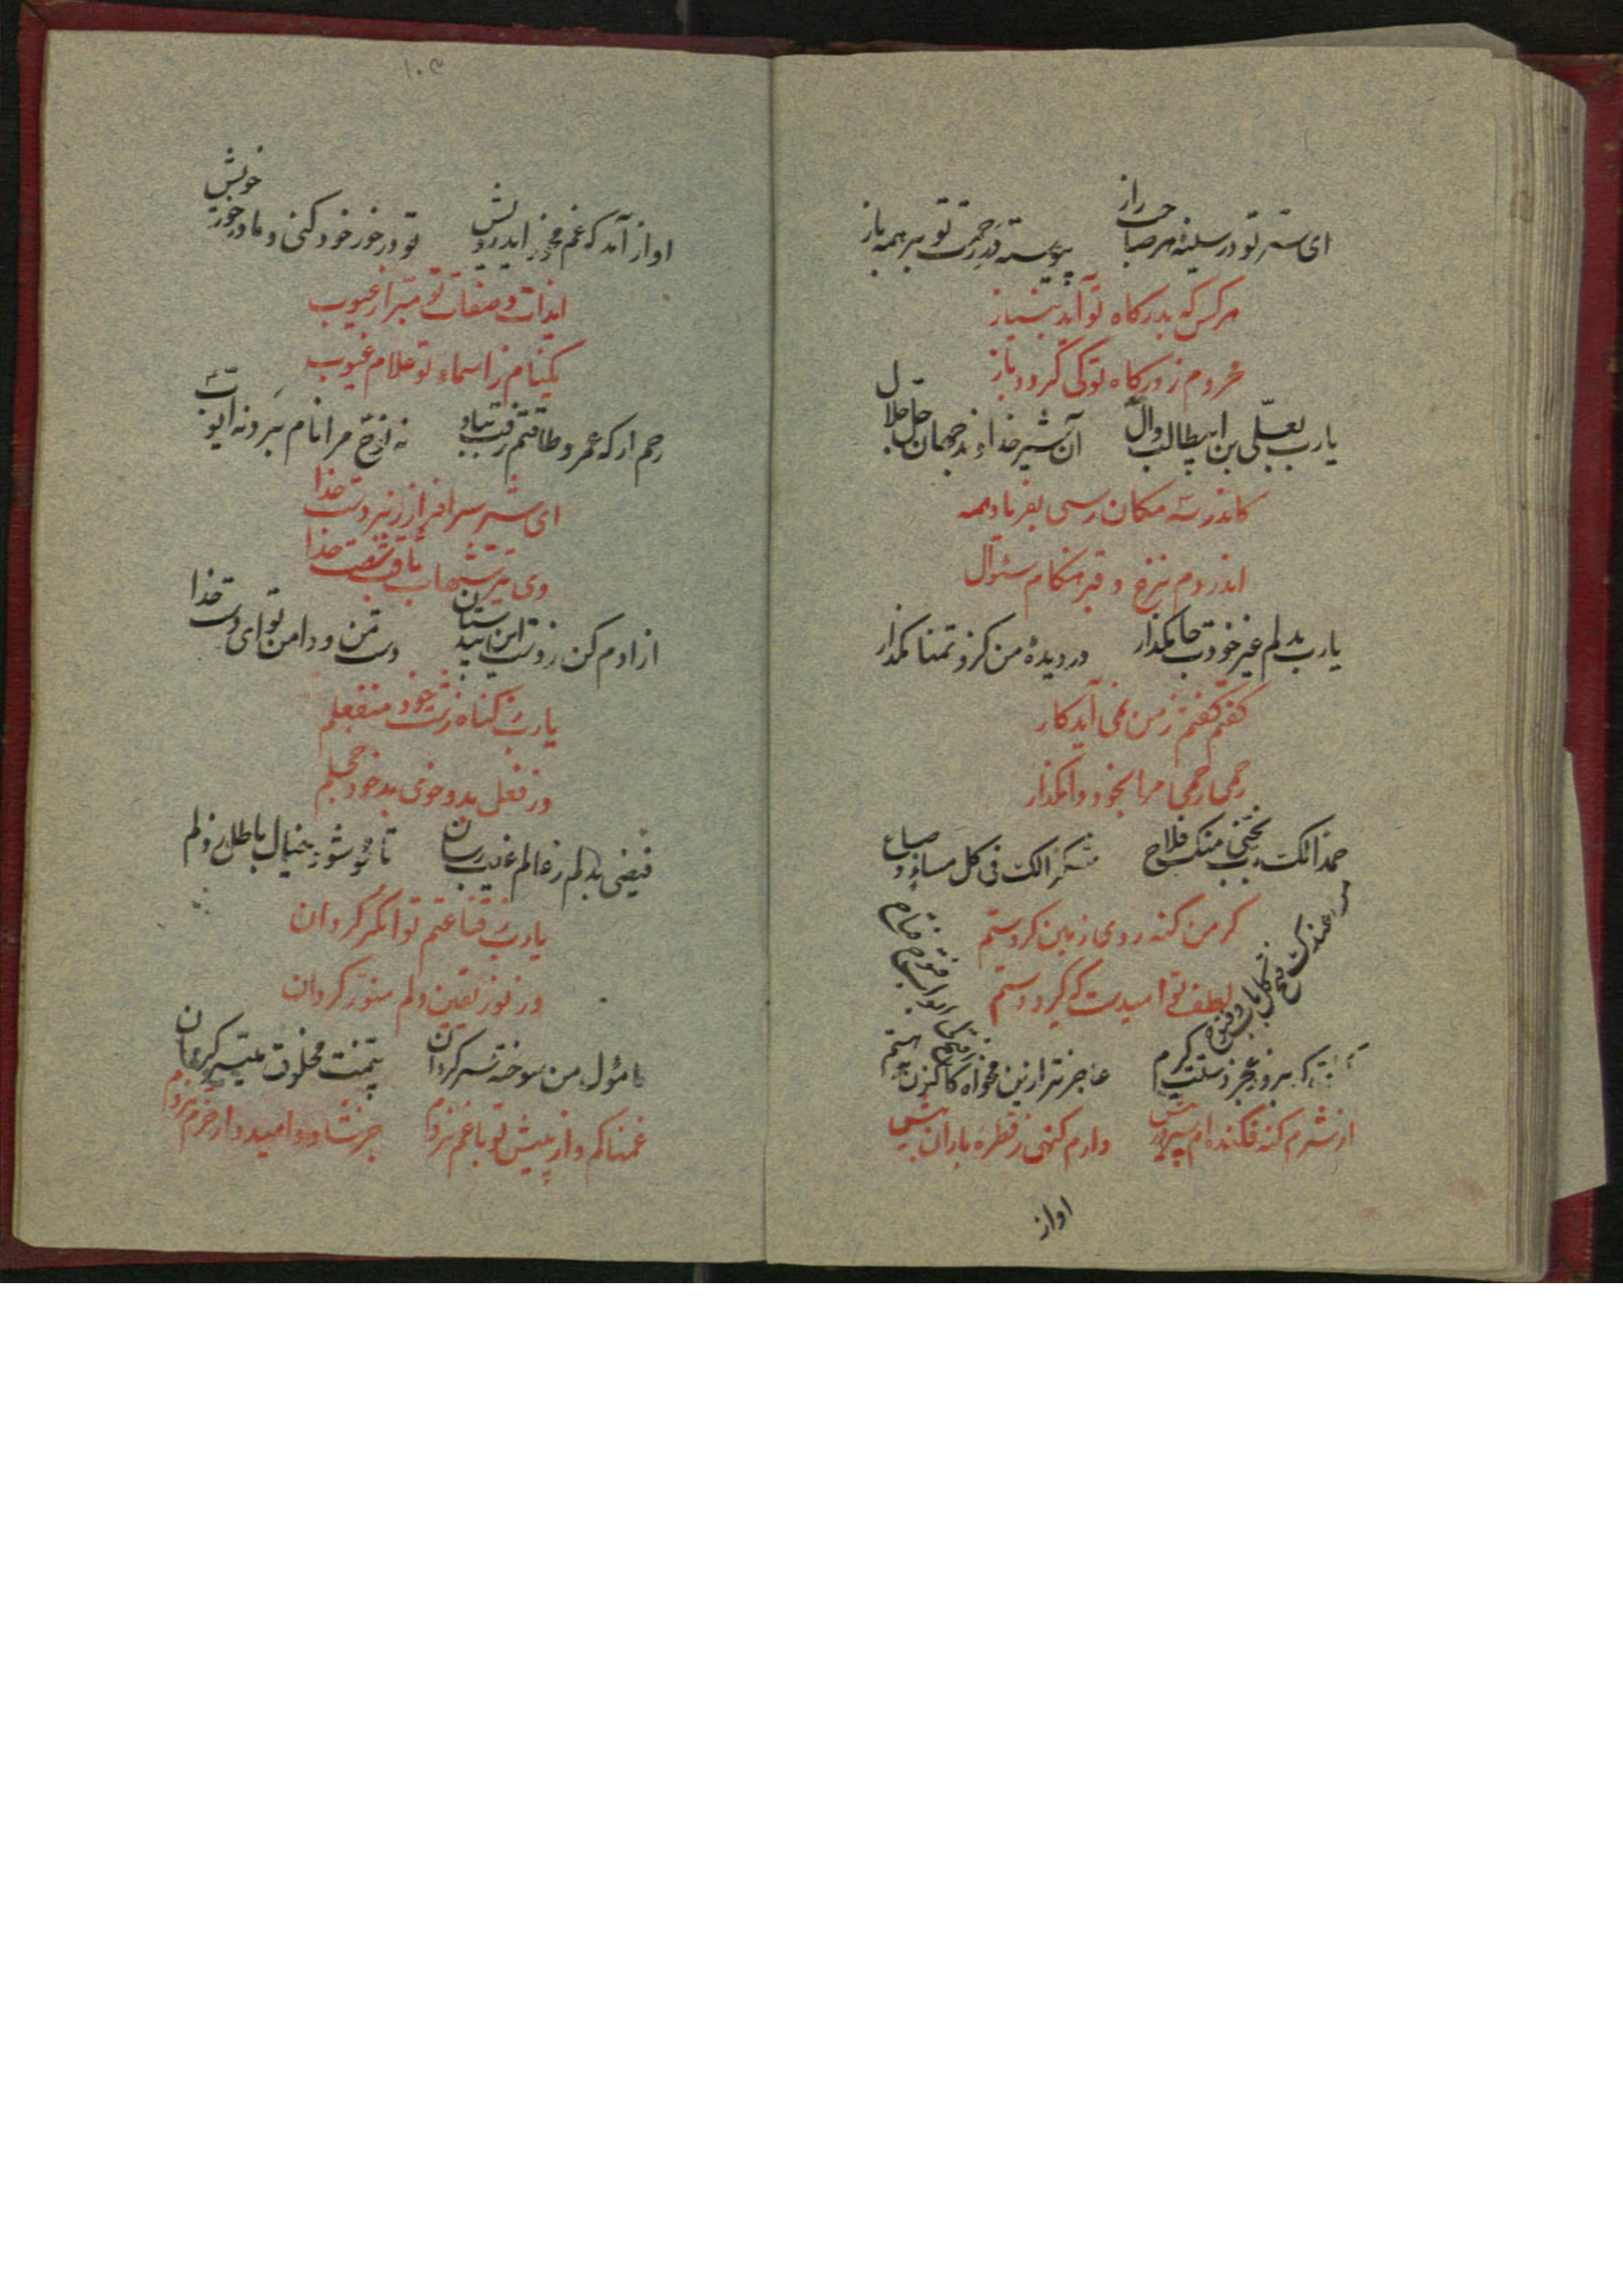 ای سر تو در سینه هر صاحب راز پیوسته در رحمت تو بر همه باز
هر کس که بدرگاه تو آید بنیاز
محروم ز درگاه تو کی گردد باز
یارب بعلی بن ابیطالب و آل آن شیر خداوند جهان جل جلال
کاندر سه مکان رسی بفریاد همه
اندر دم نزع و قبر هنگام سئوال
یارب بدلم غیر خودت جا مگذار در دیده من گرد تمنا مگذار
گفتم گفتم ز من نمی آید کار
رحمی رحمی مرا بخود وا مگذار
حمدا لک رب نجنی منک فلاح شکرا لک فی کل مساء و صباح
من عندک فتح کل باب و فتوح
گر من گنه روی زمین کردستم
لطف تو امیدست که گیرد دستم
گفتی که بروز عجز دستت گیرم عاجزتر ازین مخواه کاکنون هستم
از شرم گنه فکنده ام سر در پیش دارم گنهی ز قطره باران بیش
اواز
۱۰۹
اواز آمد که غم مخور ایدرویش تو در خور خود کنی و ما در خور خویش
ایذات و صفات تو مبرا ز عیوب
یکنام ز اسماء تو علام غیوب
رحم ار که عمر و طاقتم رفت بباد نه نوح مرا نام بود نه ایوب
ای شیر سرافراز زبردست خدا
وی تیر شهاب ثاقب شست خدا
ازادم کن ز دست این بیدستان دست من و دامن تو ای دست خدا
یارب ز گناه زشت خود منفعلم
وز فعل بد و خوی بد خود خجلم
فیضی بدلم ز عالم غیب رسان تا محو شود خیال باطل ز دلم
یارب ز قناعتم توانگر گردان
وز نور یقین دلم منور گردان
مأمول من سوخته سر گردان بیمنت مخلوق میسر گردان
غمناکم و از پیش تو با غم نروم جز شاد و امیدوار و خرم نروم